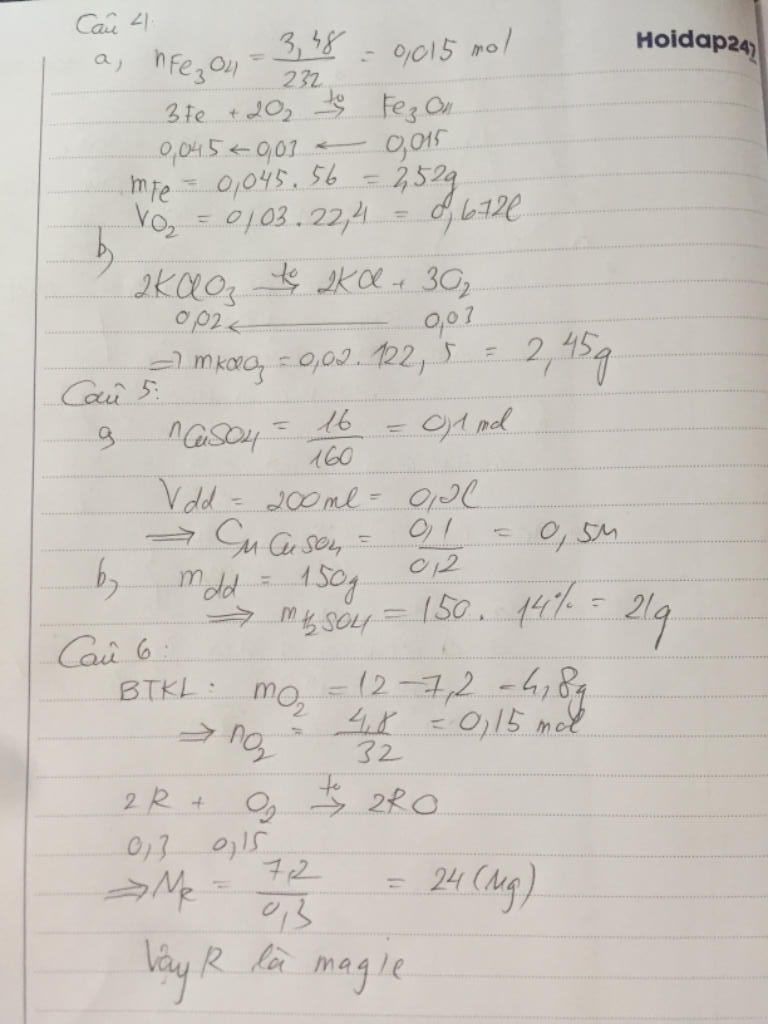 Câu 4:
Hoidap247
a, nFe3O4 = 3,48/232 = 0,015 mol
3Fe + 2O2 t° → Fe3O4
0,045 ← 0,03 ← 0,015
mFe = 0,045.56 = 2,52g
VO2 = 0,03.22,4 = 0,672l
b,
2KClO3 t° → 2KCl + 3O2
0,02 ← 0,03
=> mKClO3 = 0,02.122,5 = 2,45g
Câu 5:
a, nCuSO4 = 16/160 = 0,1 mol
Vdd = 200ml = 0,2l
=> CM CuSO4 = 0,1/0,2 = 0,5M
b, mdd = 150g
=> mH2SO4 = 150. 14% = 21g
Câu 6:
BTKL: mO2 = 12 - 7,2 = 4,8g
=> nO2 = 4,8/32 = 0,15 mol
2R + O2 t° → 2RO
0,3 0,15
=> MR = 7,2/0,3 = 24 (Mg)
Vậy R là magie